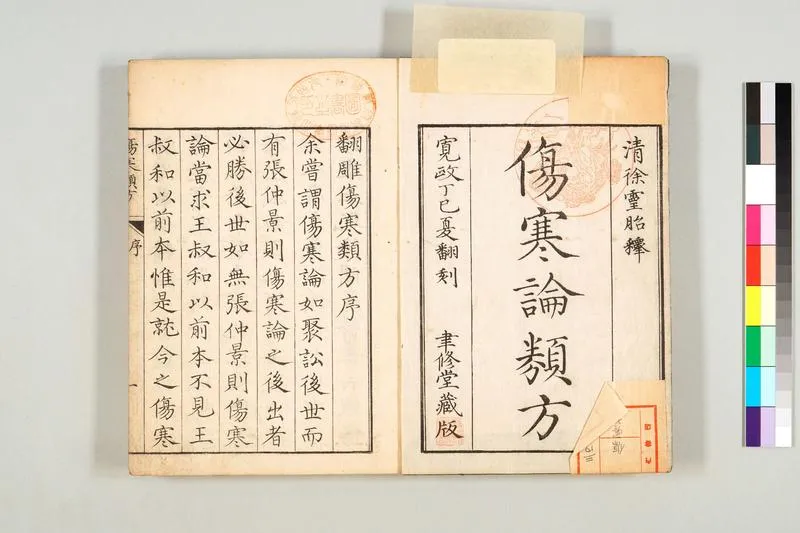 清徐靈胎釋
傷寒論類方
寛政丁巳夏翻刻
聿修堂藏版
翻雕傷寒類方序
余嘗謂傷寒論如聚訟後世而
有張仲景則傷寒論之後出者
必勝後世如無張仲景則傷寒
論當求王叔和以前本不見王
叔和以前本惟是就今之傷寒
傷寒類方
序
一